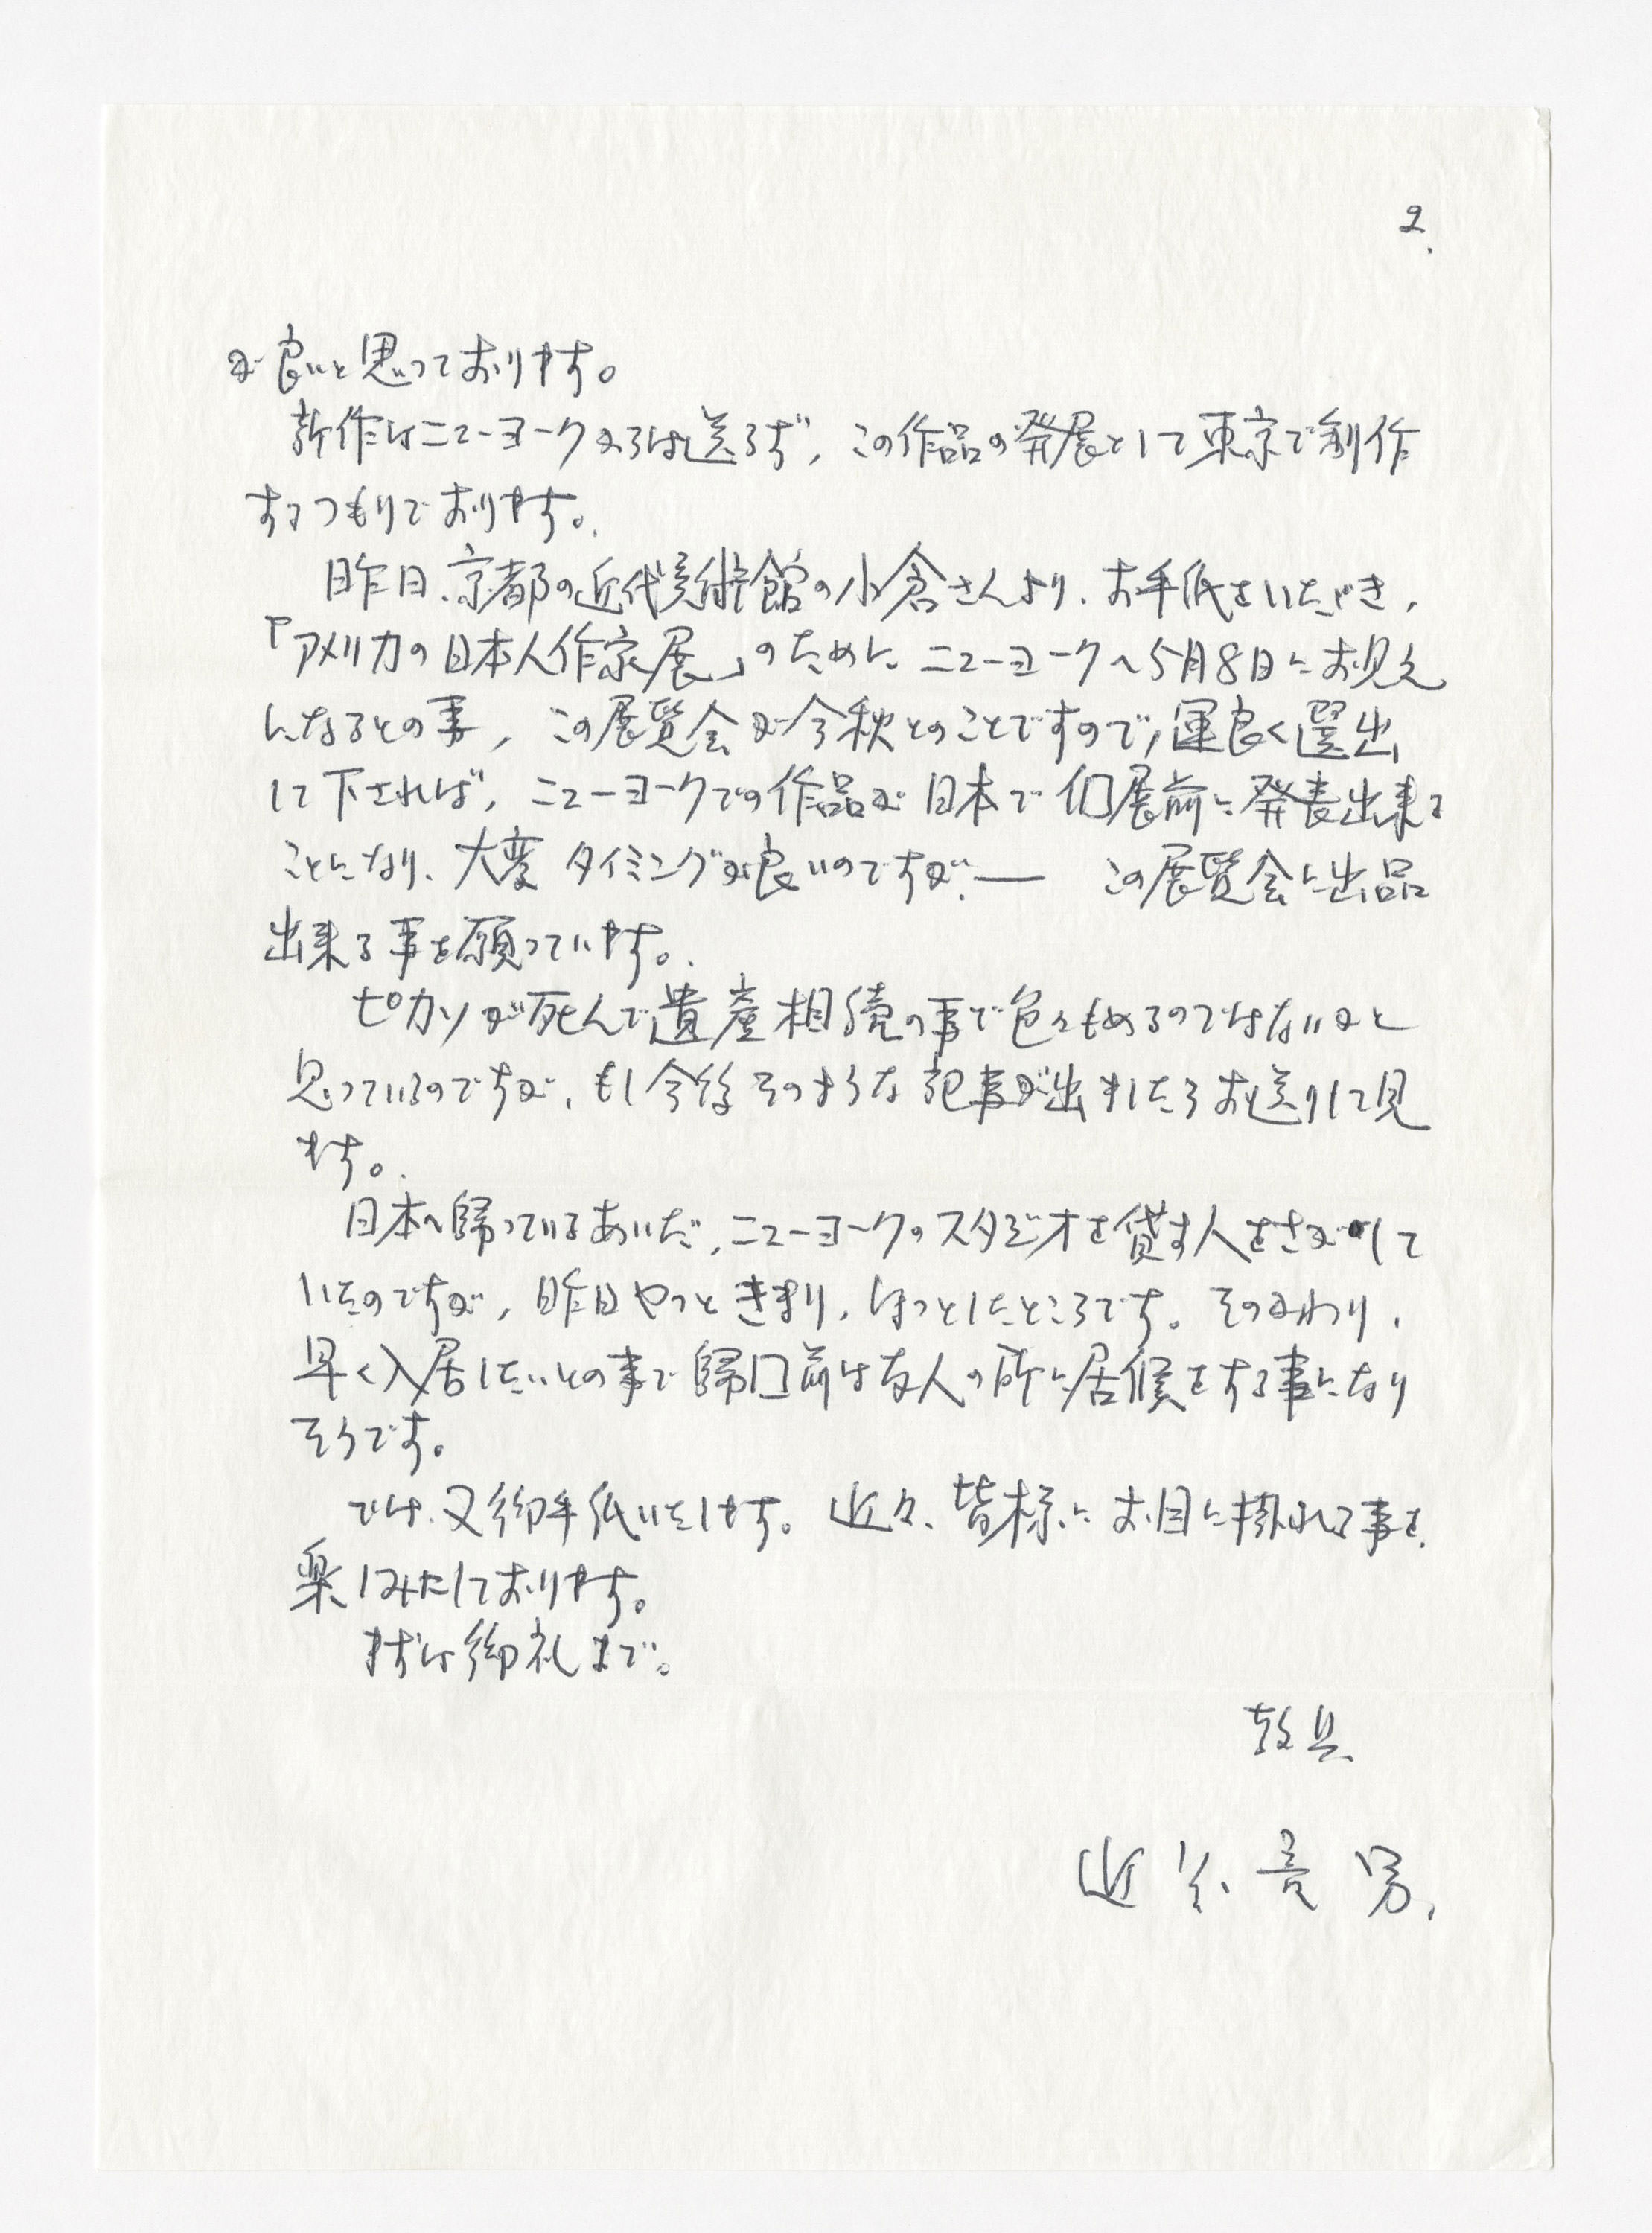 2.
が良いと思っております。
新作はニューヨークからは送らず、この作品の発展として東京で制作
するつもりでおります。
昨日、京都の近代美術館の小倉さんより、お手紙をいただき、
『アメリカの日本人作家展』のために、ニューヨークへ5月8日にお見え
になるとの事、この展覧会が今秋とのことですので、運良く選出
して下されば、ニューヨークでの作品が日本で個展前に発表出来る
ことになり、大変タイミングが良いのですが、― この展覧会に出品
出来る事を願っています。
ピカソが死んで遺産相続の事で色々もめるのではないかと
思っているのですが、もし今後そのような記事が出ましたらお送りして見
ます。
日本へ帰っているあいだ、ニューヨークのスタジオを貸す人をさがして
いたのですが、昨日やっときまり、ほっとしたところです。そのかわり、
早く入居したいとの事で帰国前は友人の所に居候をする事になり
そうです。
では、又御手紙いたします。近々、皆様にお目に掛れる事を、
楽しみたしております。
まずは御礼まで。
敬具、
近 亮男、